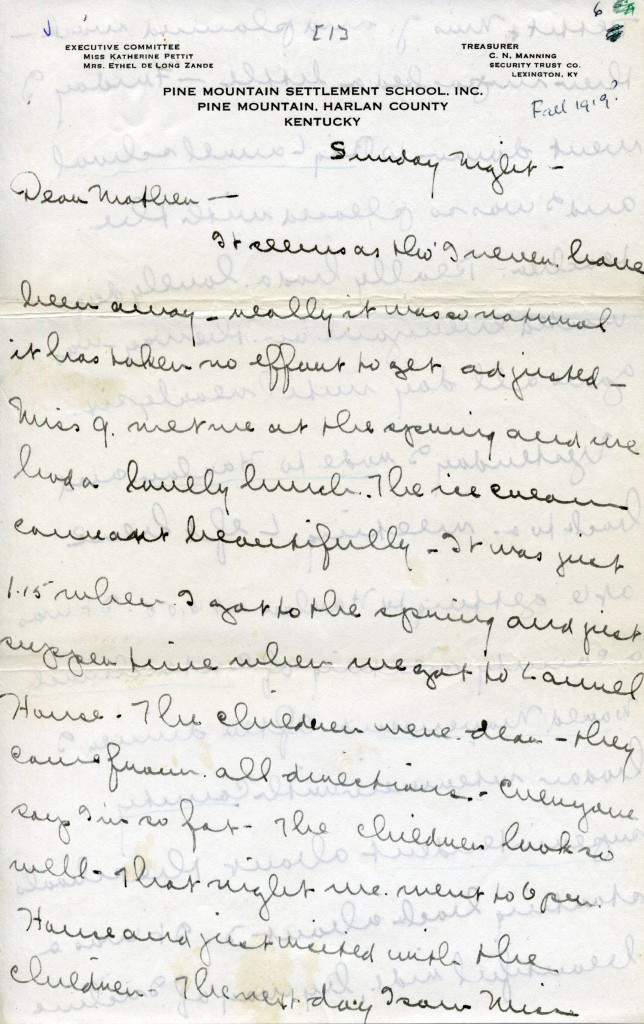 [1]
6
EXECUTIVE COMMITTEE
MISS KATHERINE PETTIT
MRS. ETHEL DE LONG ZANDE
TREASURER
C. N. MANNING
SECURITY TRUST CO.
LEXINGTON, KY
PINE MOUNTAIN SETTLEMENT SCHOOL, INC.
PINE MOUNTAIN, HARLAN COUNTY
KENTUCKY
Fall 1919?
Sunday night -
Dear Mother -
It seems as tho' I never have
been away - really it was so natural
it has taken no effort to get adjusted -
Miss G. met me at the spring and we
had a lovely lunch. The ice cream
came beautifully - It was just
1.15 when I got to the spring and just
supper time when we got to Laurel
House. The children were dear - they
came from all directions. - Everyone
says I'm so fat - The children look so
well - That night we went to Open
House and just visited with the
children - The next day I saw Miss